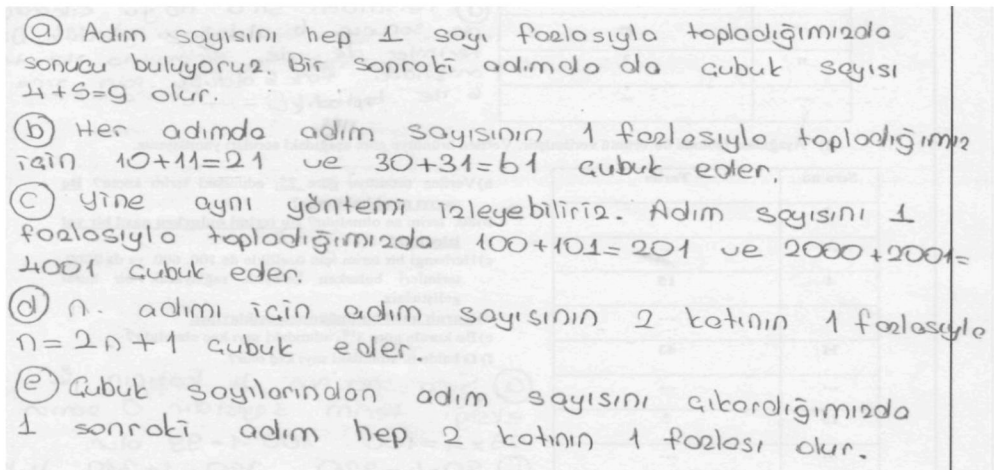 a) Adım sayısını hep 1 sayı fazlasıyla topladığımızda
sonucu buluyoruz. Bir sonraki adımda da çubuk sayısı
4+5=9 olur.
b) Her adımda adım sayısının 1 fazlasıyla topladığımız
için 10+11=21 ve 30+31=61 çubuk eder.
c) Yine aynı yöntemi izleyebiliriz. Adım sayısını 1
fazlasıyla topladığımızda 100+101=201 ve 2000+2001=
4001 çubuk eder.
d) n. adımı için adım sayısının 2 katının 1 fazlasıyla
n=2n+1 çubuk eder.
e) Çubuk sayılarından adım sayısını çıkardığımızda
1 sonraki adım hep 2 katının 1 fazlası olur.